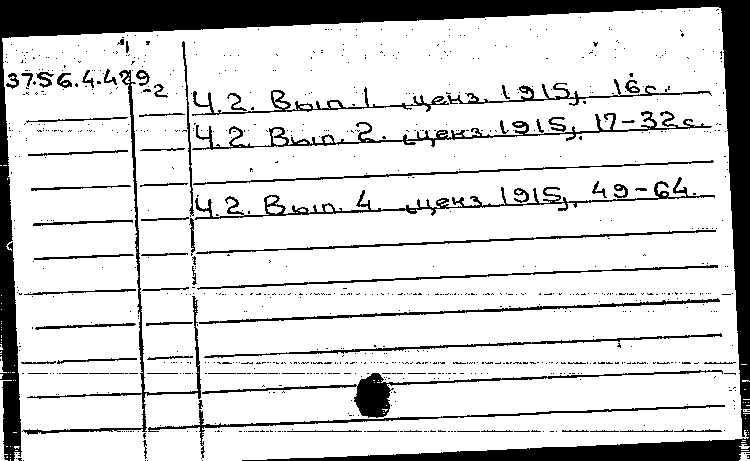 37.56.4.429
-2
Ч.2. Вып.1. [ценз. 1915]. 16с.
Ч.2. Вып. 2. [ценз. 1915]. 17-32с.
Ч.2. Вып. 4. [ценз. 1915]. 49-64.